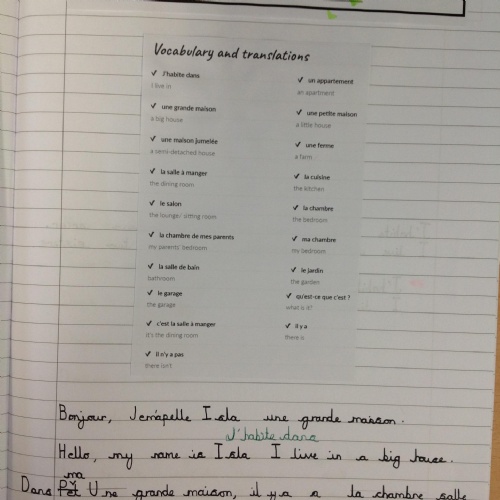 Vocabulary and translations
✓ J'habite dans
I live in
✓ une grande maison
a big house
✓ une maison jumelée
a semi-detached house
✓ la salle à manger
the dining room
✓ le salon
the lounge/ sitting room
✓ la chambre de mes parents
my parents' bedroom
✓ la salle de bain
bathroom
✓ le garage
the garage
✓ c'est la salle à manger
it's the dining room
✓ il n'y a pas
there isn't
✓ un appartement
an apartment
✓ une petite maison
a little house
✓ une ferme
a farm
✓ la cuisine
the kitchen
✓ la chambre
the bedroom
✓ ma chambre
my bedroom
✓ le jardin
the garden
✓ qu'est-ce que c'est ?
what is it?
✓ il y a
there is
Bonjour, Jemapelle Isla une grande maison.
J'habite dans
Hello, my name is Isla I live in a big house.
ma
Dans Une grande maison, il y a a la chambre salle